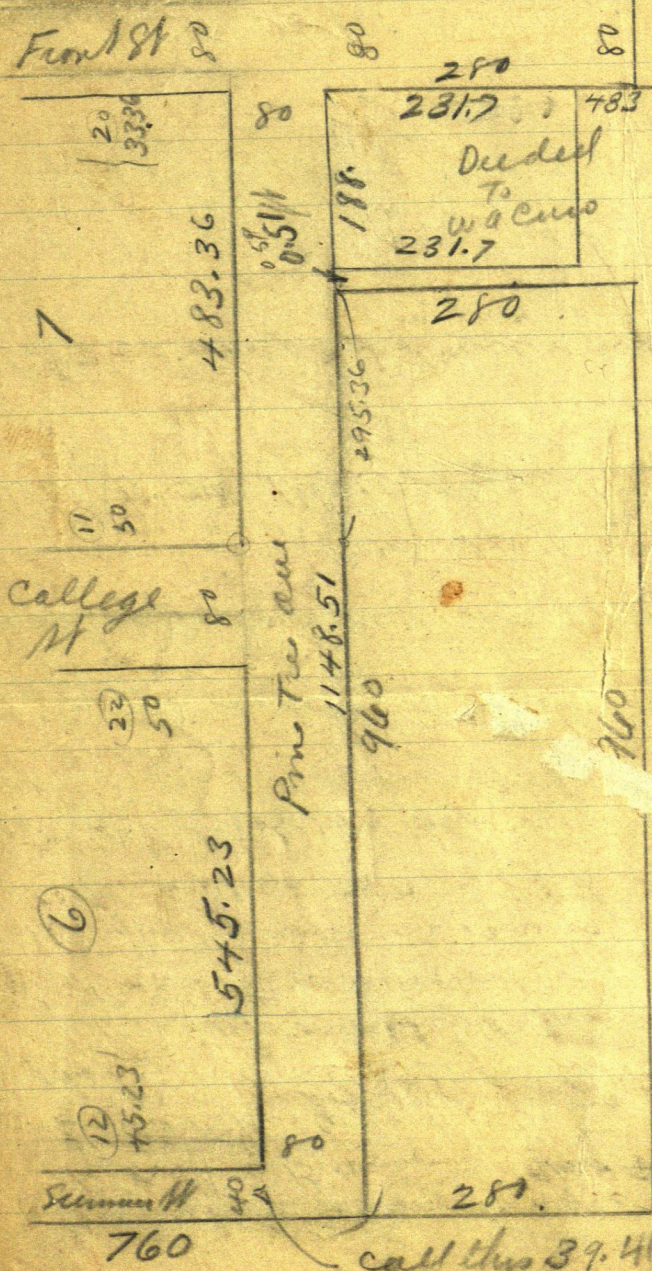 Front St 80 80 80
280
20
33.36
80
231.7
483
Deeded
To
188.
231.7
7
483.36
0.51
280
295.36
11
50
College
St
80
Pine Tree ave
1148.51
960
960
22
50
6
545.23
12
45.23
80
Summer St
40
280.
760
call this 39.4